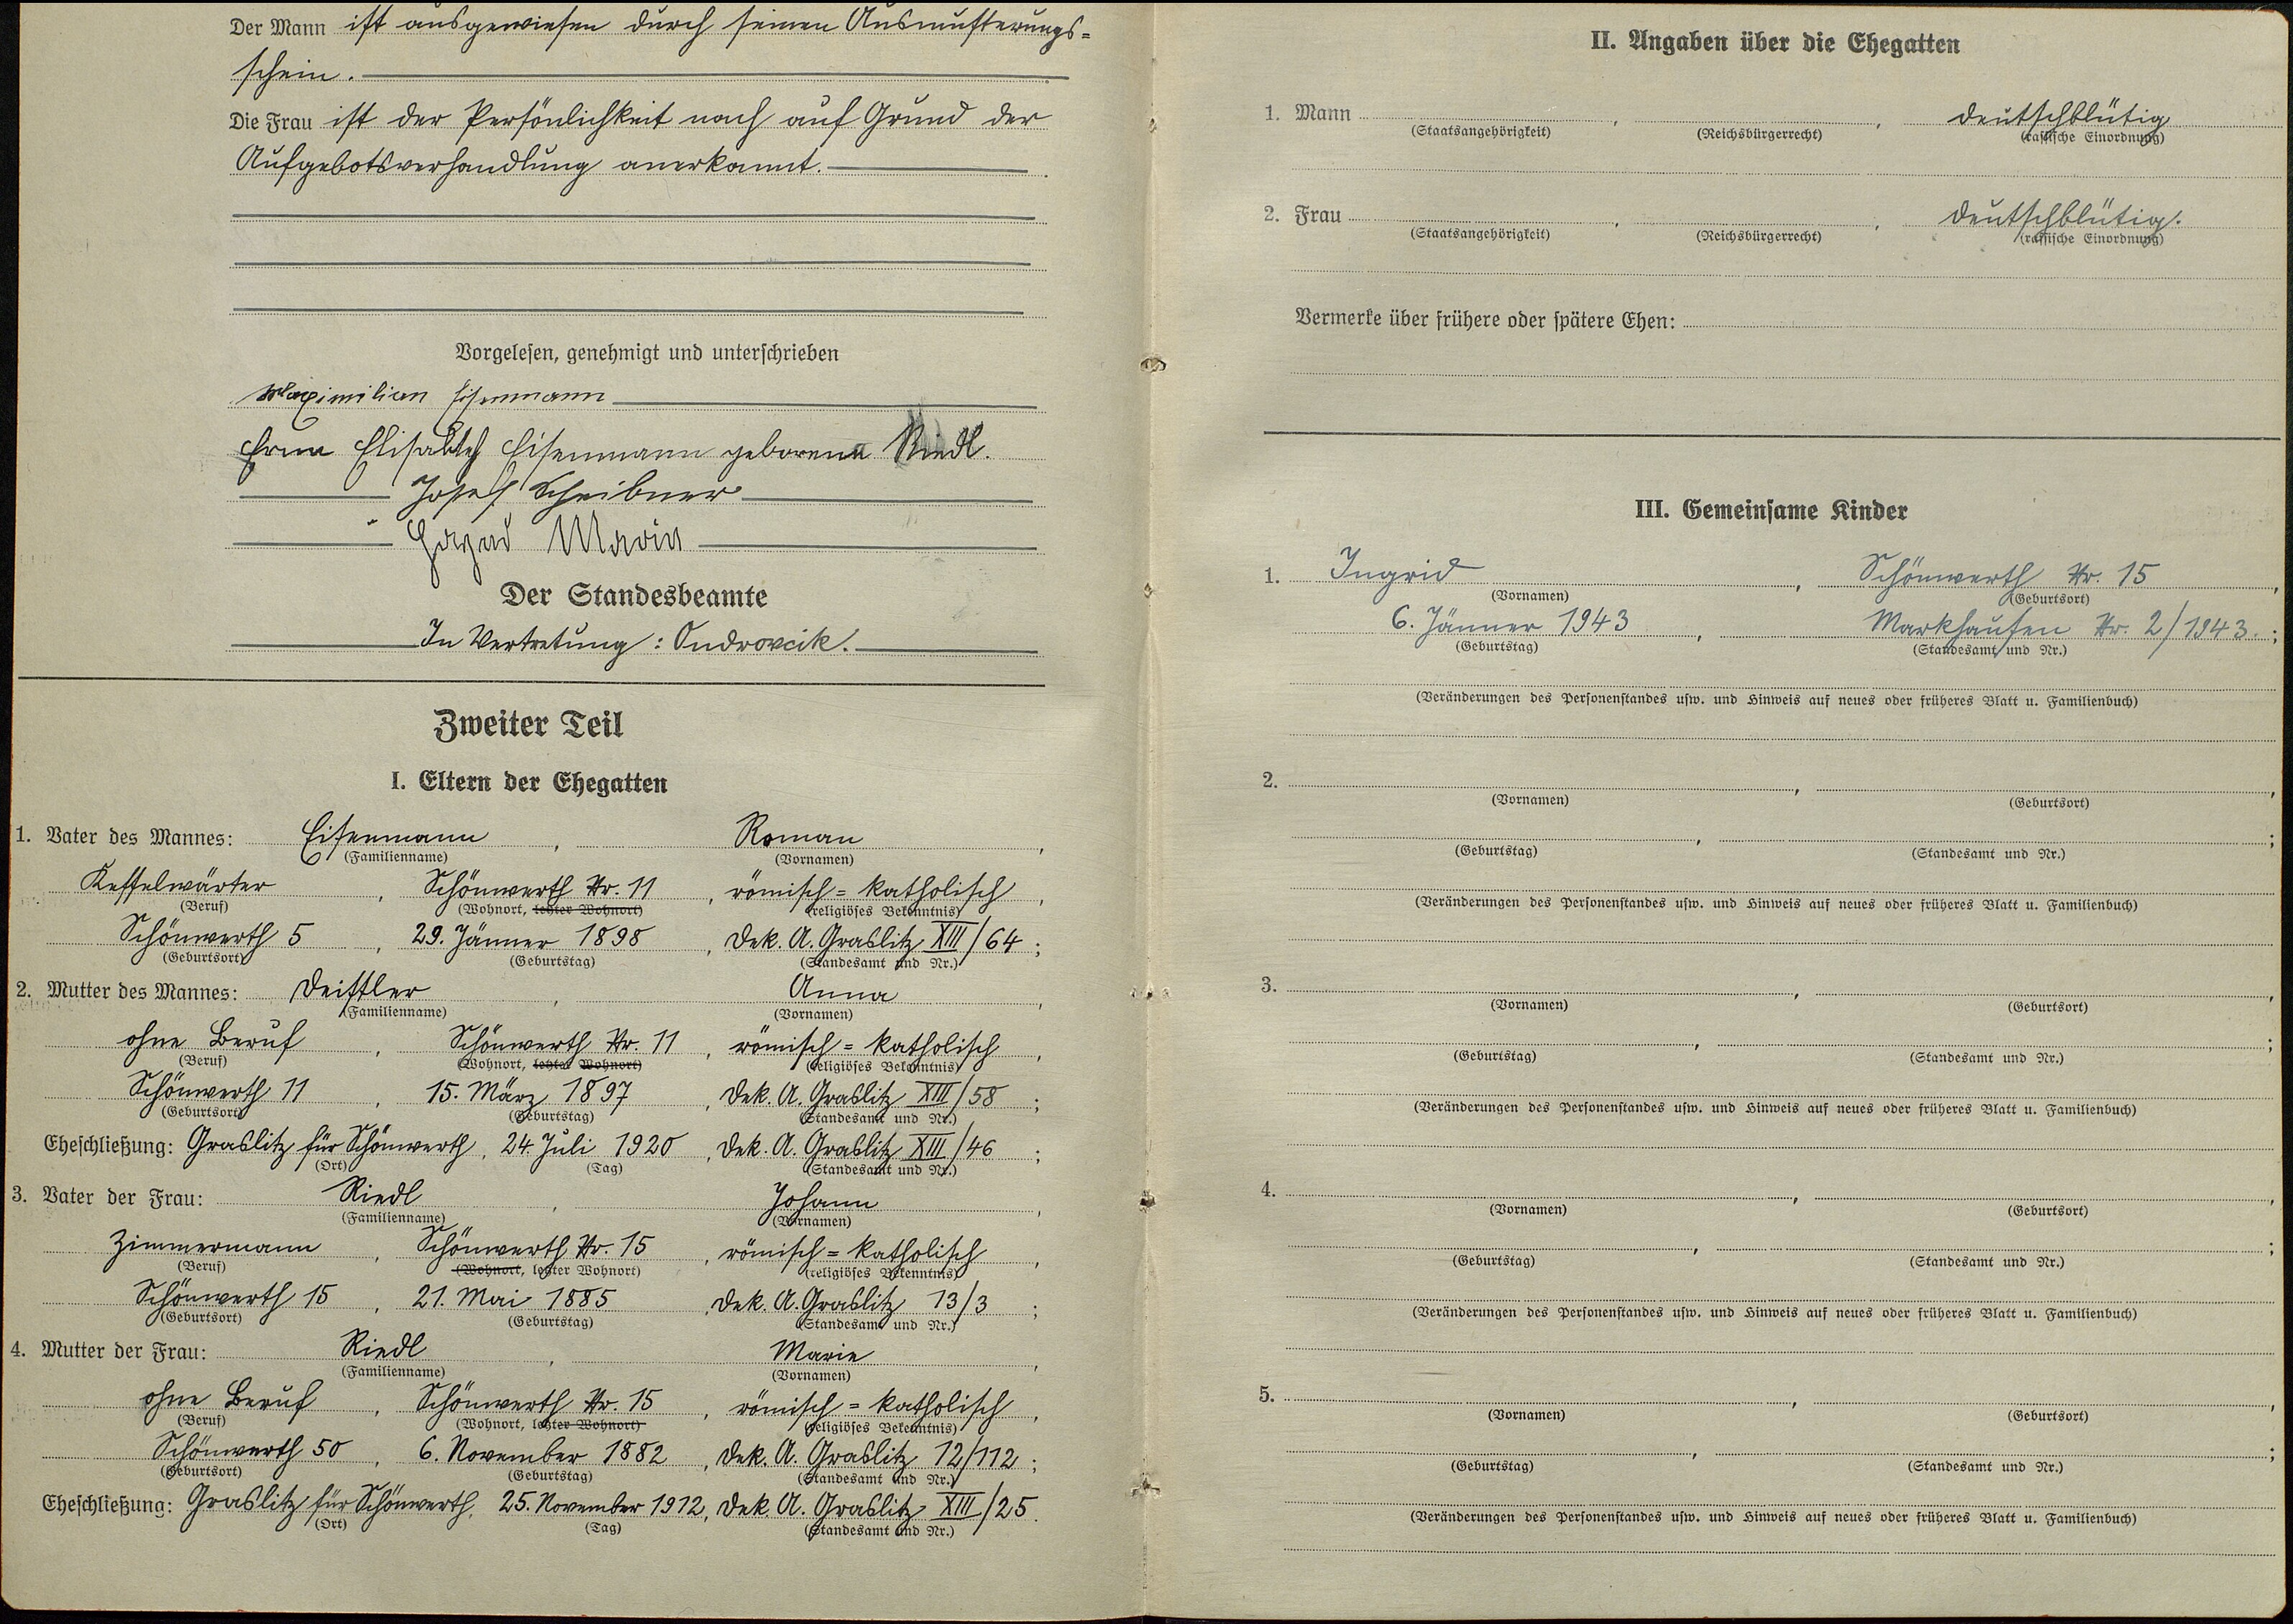 Der Mann ist ausgewiesen durch seinen Ausmusterungs=
schein.
Die Frau ist der Persönlichkeit nach auf Grund der
Aufgebotsverhandlung anerkannt.
Vorgelesen, genehmigt und unterschrieben
Maximilian Eisenmann
Erna Elisabeth Eisenmann geborene Riedl.
Josef Scheibner
Marie
Der Standesbeamte
In Vertretung: Ondrovcik.
Zweiter Teil
I. Eltern der Ehegatten
1. Vater des Mannes: Eisenmann, Roman,
(Familienname) (Vornamen)
Kesselwärter, Schönwerth Nr. 11, römisch=katholisch,
(Beruf) (Wohnort, letzter Wohnort) (religiöses Bekenntnis)
Schönwerth 5, 29. Jänner 1898, Dek. A. Graslitz XIII/64;
(Geburtsort) (Geburtstag) (Standesamt und Nr.)
2. Mutter des Mannes: Deistler, Anna,
(Familienname) (Vornamen)
ohne Beruf, Schönwerth Nr. 11, römisch=katholisch,
(Beruf) (Wohnort, letzter Wohnort) (religiöses Bekenntnis)
Schönwerth 11, 15. März 1897, Dek. A. Graslitz XIII/58;
(Geburtsort) (Geburtstag) (Standesamt und Nr.)
Eheschließung: Graslitz für Schönwerth, 24. Juli 1920, Dek. A. Graslitz XIII/46;
(Ort) (Tag) (Standesamt und Nr.)
3. Vater der Frau: Riedl, Johann,
(Familienname) (Vornamen)
Zimmermann, Schönwerth Nr. 15, römisch=katholisch,
(Beruf) (Wohnort, letzter Wohnort) (religiöses Bekenntnis)
Schönwerth 15, 21. Mai 1885, Dek. A. Graslitz 13/3;
(Geburtsort) (Geburtstag) (Standesamt und Nr.)
4. Mutter der Frau: Riedl, Marie,
(Familienname) (Vornamen)
ohne Beruf, Schönwerth Nr. 15, römisch=katholisch,
(Beruf) (Wohnort, letzter Wohnort) (religiöses Bekenntnis)
Schönwerth 50, 6. November 1882, Dek. A. Graslitz 12/112;
(Geburtsort) (Geburtstag) (Standesamt und Nr.)
Eheschließung: Graslitz für Schönwerth, 25. November 1912, Dek. A. Graslitz XIII/25.
(Ort) (Tag) (Standesamt und Nr.)
II. Angaben über die Ehegatten
1. Mann , , deutschblütig
(Staatsangehörigkeit) (Reichsbürgerrecht) (rassische Einordnung)
2. Frau , , deutschblütig.
(Staatsangehörigkeit) (Reichsbürgerrecht) (rassische Einordnung)
Vermerke über frühere oder spätere Ehen:
III. Gemeinsame Kinder
1. Ingrid, Schönwerth Nr. 15,
(Vornamen) (Geburtsort)
6. Jänner 1943, Markhausen Nr. 2/1943.;
(Geburtstag) (Standesamt und Nr.)
(Veränderungen des Personenstandes usw. und Hinweis auf neues oder früheres Blatt u. Familienbuch)
2. , ,
(Vornamen) (Geburtsort)
, ;
(Geburtstag) (Standesamt und Nr.)
(Veränderungen des Personenstandes usw. und Hinweis auf neues oder früheres Blatt u. Familienbuch)
3. , ,
(Vornamen) (Geburtsort)
, ;
(Geburtstag) (Standesamt und Nr.)
(Veränderungen des Personenstandes usw. und Hinweis auf neues oder früheres Blatt u. Familienbuch)
4. , ,
(Vornamen) (Geburtsort)
, ;
(Geburtstag) (Standesamt und Nr.)
(Veränderungen des Personenstandes usw. und Hinweis auf neues oder früheres Blatt u. Familienbuch)
5. , ,
(Vornamen) (Geburtsort)
, ;
(Geburtstag) (Standesamt und Nr.)
(Veränderungen des Personenstandes usw. und Hinweis auf neues oder früheres Blatt u. Familienbuch)